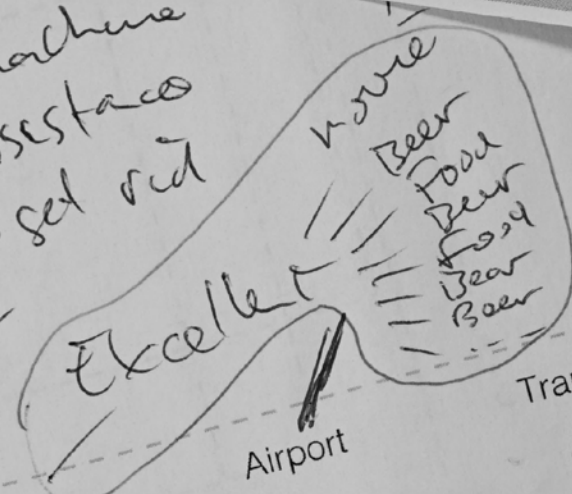 machine
assistance
get rid
movie
Beer
Food
Beer
Food
Beer
Beer
Excellent
Airport
Tra